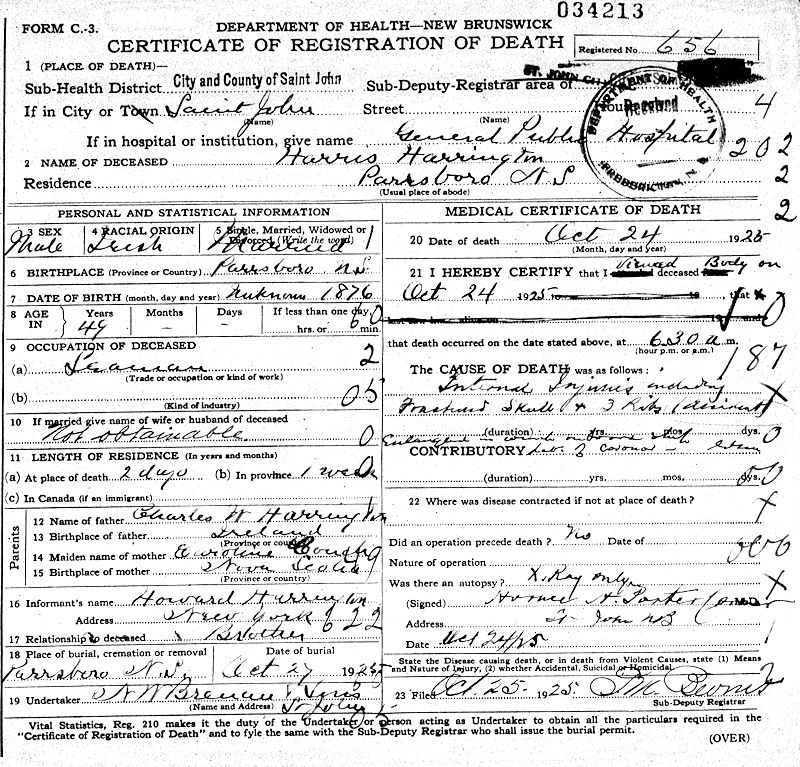 034213
FORM C.-3.
DEPARTMENT OF HEALTH—NEW BRUNSWICK
CERTIFICATE OF REGISTRATION OF DEATH
Registered No 656
1 (PLACE OF DEATH)—
Sub-Health District City and County of Saint John Sub-Deputy-Registrar area of ST. JOHN
If in City or Town Saint John Street 4
(Name) (Name)
DEPARTMENT OF HEALTH
Received
FREDERICTON, N B
If in hospital or institution, give name General Public Hospital
2 NAME OF DECEASED Harris Harrington 202
Residence Parrsboro N S 2
(Usual place of abode) 2
PERSONAL AND STATISTICAL INFORMATION
3 SEX 4 RACIAL ORIGIN 5 Single, Married, Widowed or Divorced (Write the word)
Male Irish Married 1
6 BIRTHPLACE (Province or Country) Parrsboro N S
7 DATE OF BIRTH (month, day and year) Unknown 1876
8 AGE IN Years Months Days If less than one day
49 – – hrs. or min
9 OCCUPATION OF DECEASED 2
(a) Seaman
(Trade or occupation or kind of work)
(b) 05
(Kind of industry)
10 If married give name of wife or husband of deceased
Not obtainable 0
11 LENGTH OF RESIDENCE (In years and months)
(a) At place of death 2 days (b) In province 1 week
(c) In Canada (if an immigrant)
Parents
12 Name of father Charles W Harrington
13 Birthplace of father Ireland 1
(Province or country)
14 Maiden name of mother Caroline
15 Birthplace of mother Nova Scotia
(Province or country)
16 Informant's name Howard Harrington
Address New York 622
17 Relationship to deceased Brother
18 Place of burial, cremation or removal Date of burial
Parrsboro N.S. Oct 27 1925
19 Undertaker N W Brenan & Sons
(Name and Address) St John
MEDICAL CERTIFICATE OF DEATH
20 Date of death Oct 24 1925
(Month, day and year)
21 I HEREBY CERTIFY that I Viewed deceased Body on
Oct 24 1925 19 , that
19
that death occurred on the date stated above, at 6.30 a m.
(hour p.m. or a.m.)
The CAUSE OF DEATH was as follows: 187
Internal Injuries including
Fractured Skull & 3 Ribs (
(duration) yrs. mos. dys. 0
CONTRIBUTORY
(duration) yrs. mos. dys.
22 Where was disease contracted if not at place of death? X
Did an operation precede death? No Date of
Nature of operation 000
Was there an autopsy? X. Ray only X
(Signed) Horace A. Porter M.D.
Address St John NB
Date Oct 24/25
State the Disease causing death, or in death from Violent Causes, state (1) Means
and Nature of Injury, (2) whether Accidental, Suicidal or Homicidal.
23 Filed Oct 25. 1925
Sub-Deputy Registrar
Vital Statistics, Reg. 210 makes it the duty of the Undertaker or person acting as Undertaker to obtain all the particulars required in the
"Certificate of Registration of Death" and to fyle the same with the Sub-Deputy Registrar who shall issue the burial permit.
(OVER)